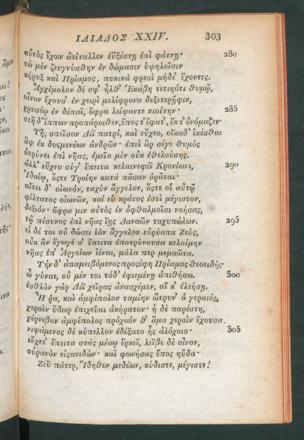 ΙΛΙΑΔΟΣ XXIV. 303
αὐτὸς ἔχων ἀτίταλλεν ἐϋξέστῃ ἐπὶ φάτνῃ· 280
τὼ μὲν ζευγνύσθην ἐν δώμασιν ὑψηλοῖσιν
κῆρυξ καὶ Πρίαμος, πυκινὰ φρεσὶ μήδε' ἔχοντες.
Ἀγχίμολον δέ σφ' ἦλθ' Ἑκάβη τετιηότι θυμῷ,
οἶνον ἔχουσ' ἐν χειρὶ μελίφρονα δεξιτερῆφιν,
χρυσέῳ ἐν δέπαϊ, ὄφρα λείψαντε κιοίτην· 285
στῆ δ' ἵππων προπάροιθεν, ἔπος τ' ἔφατ', ἔκ τ' ὀνόμαζεν·
Τῆ, σπεῖσον Διῒ πατρὶ, καὶ εὔχεο, οἴκαδ' ἱκέσθαι
ἂψ ἐκ δυσμενέων ἀνδρῶν· ἐπεὶ ἂρ σέγε θυμὸς
ὀτρύνει ἐπὶ νῆας, ἐμεῖο μὲν οὐκ ἐθελούσης.
ἀλλ' εὔχευ σύγ' ἔπειτα κελαινεφέϊ Κρονίωνι, 290
Ἰδαίῳ, ὅστε Τροίην κατὰ πᾶσαν ὁρᾶται·
αἴτει δ' οἰωνὸν, ταχὺν ἄγγελον, ὅστε οἱ αὐτῷ
φίλτατος οἰωνῶν, καὶ εὑ κράτος ἐστὶ μέγιστον,
δεξιόν· ὄφρα μιν αὐτὸς ἐν ὀφθαλμοῖσι νοήσας,
τῷ πίσυνος ἐπὶ νῆας ἴῃς Δαναῶν ταχυπώλων. 295
εἰ δέ τοι οὐ δώσει ἑὸν ἄγγελον εὐρύοπα Ζεὺς,
οὐκ ἂν ἔγωγέ σ' ἔπειτα ἐποτρύνουσα κελοίμην
νῆας ἐπ' Ἀργείων ἰέναι, μάλα περ μεμαῶτα.
Τὴν δ' ἀπαμειβόμενος προσέφη Πρίαμος θεοειδής·
ὦ γύναι, οὐ μέν τοι τόδ' ἐφιεμένῃ ἀπιθήσω. 300
ἐσθλὸν γὰρ Διῒ χεῖρας ἀνασχέμεν, αἴ κ' ἐλεήσῃ.
Ἦ ῥα, καὶ ἀμφίπολον ταμίην ὤτρυν' ὁ γεραιὸς,
χερσὶν ὕδωρ ἐπιχεῦαι ἀκήρατον· ἡ δὲ παρέστη,
χέρνιβον ἀμφίπολος πρόχοόν θ' ἅμα χερσὶν ἔχουσα.
νιψάμενος δὲ κύπελλον ἐδέξατο ἧς ἀλόχοιο· 305
εὔχετ' ἔπειτα στὰς μέσῳ ἕρκεϊ, λεῖβε δὲ οἶνον,
οὐρανὸν εἰσανιδών· καὶ φωνήσας ἔπος ηὔδα·
Ζεῦ πάτερ, Ἴδηθεν μεδέων, κύδιστε, μέγιστε!